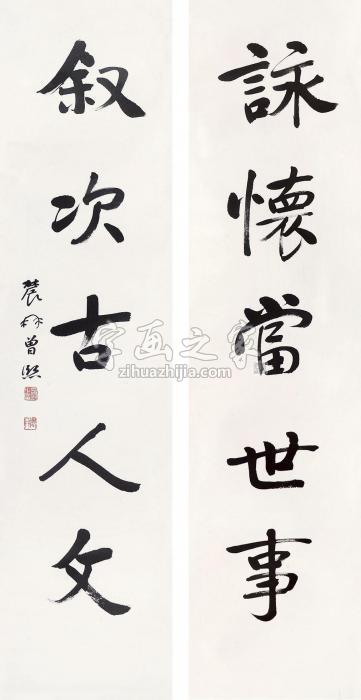 詠懷當世事
叙次古人文
農髯曾熙
字画之家
zihuazhijia.com